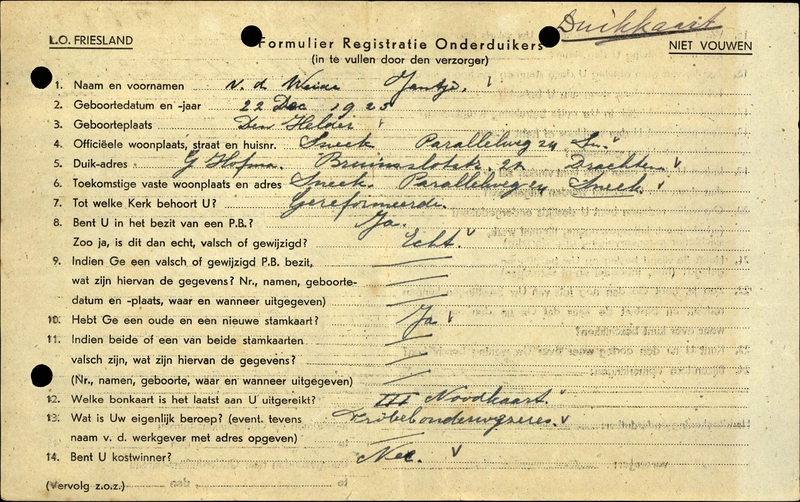 Duikkaart
L.O. FRIESLAND
Formulier Registratie Onderduikers
NIET VOUWEN
(in te vullen door den verzorger)
1. Naam en voornamen v. d. Weide Jantje.
2. Geboortedatum en -jaar 22 Dec 1925
3. Geboorteplaats Den Helder
4. Officiëele woonplaats, straat en huisnr. Sneek Parallelweg 24 Sn.
5. Duik-adres G Hofma. Bruinsslotstr. 22 Drachten
6. Toekomstige vaste woonplaats en adres Sneek. Parallelweg 24 Sneek
7. Tot welke Kerk behoort U? Gereformeerde.
8. Bent U in het bezit van een P.B.? Ja.
Zoo ja, is dit dan echt, valsch of gewijzigd? Echt.
9. Indien Ge een valsch of gewijzigd P.B. bezit,
wat zijn hiervan de gegevens? Nr., namen, geboorte-
datum en -plaats, waar en wanneer uitgegeven)
10. Hebt Ge een oude en een nieuwe stamkaart? Ja
11. Indien beide of een van beide stamkaarten
valsch zijn, wat zijn hiervan de gegevens?
(Nr., namen, geboorte, waar en wanneer uitgegeven)
12. Welke bonkaart is het laatst aan U uitgereikt? III Noodkaart
13. Wat is Uw eigenlijk beroep? (event. tevens Fröbelonderwijzeres.
naam v. d. werkgever met adres opgeven)
14. Bent U kostwinner? Nee.
(Vervolg z.o.z.)